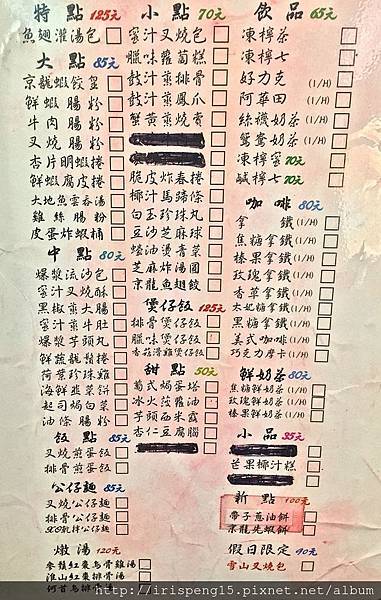 特點 125元
魚翅灌湯包
大點 85元
京龍蝦餃皇
鮮蝦腸粉
牛肉腸粉
叉燒腸粉
杏片明蝦捲
鮮蝦腐皮捲
大地魚雲吞湯
雞絲腸粉
皮蛋炸蝦桶
中點 80元
爆漿流沙包
蜜汁叉燒酥
黑椒蒸大腸
蜜汁蒸牛肚
爆漿芋頭丸
鮮蔬龍鬚捲
荷葉珍珠雞
海鮮韭菜餅
起司焗白菜
油條腸粉
飯點 85元
叉燒煎蛋飯
排骨煎蛋飯
公仔麵 85元
叉燒公仔麵
排骨公仔麵
XO醬炒公仔麵
燉湯 120元
參鬚紅棗烏骨雞湯
淮山紅棗排骨湯
何首烏排骨湯
小點 70元
蜜汁叉燒包
臘味蘿蔔糕
豉汁蒸排骨
豉汁蒸鳳爪
蟹黃蒸燒賣
脆皮炸春捲
椰汁馬蹄條
白玉珍珠丸
豆沙芝麻球
蠔油燙青菜
芝麻炸湯圓
京龍魚翅餃
煲仔飯 125元
排骨煲仔飯
臘味煲仔飯
香菇滑雞煲仔飯
甜點 50元
葡式焗蛋塔
冰火菠蘿油
芋頭西米露
杏仁豆腐腦
飲品 65元
凍檸茶
凍檸七
好力克 (1/H)
阿華田 (1/H)
絲襪奶茶 (1/H)
鴛鴦奶茶 (1/H)
凍檸蜜 70元
鹹檸七 70元
咖啡 80元
拿鐵 (1/H)
焦糖拿鐵 (1/H)
榛果拿鐵 (1/H)
玫瑰拿鐵 (1/H)
香草拿鐵 (1/H)
太妃糖拿鐵 (1/H)
黑糖拿鐵 (1/H)
美式咖啡 (1/H)
巧克力摩卡 (1/H)
鮮奶茶 80元
焦糖鮮奶茶 (1/H)
玫瑰鮮奶茶 (1/H)
榛果鮮奶茶 (1/H)
小品 35元
芒果椰汁糕
新點 100元
帶子蔥油餅
京龍先蝦餅
假日限定 40元
雪山叉燒包
http://irispeng15.pixnet.net/album